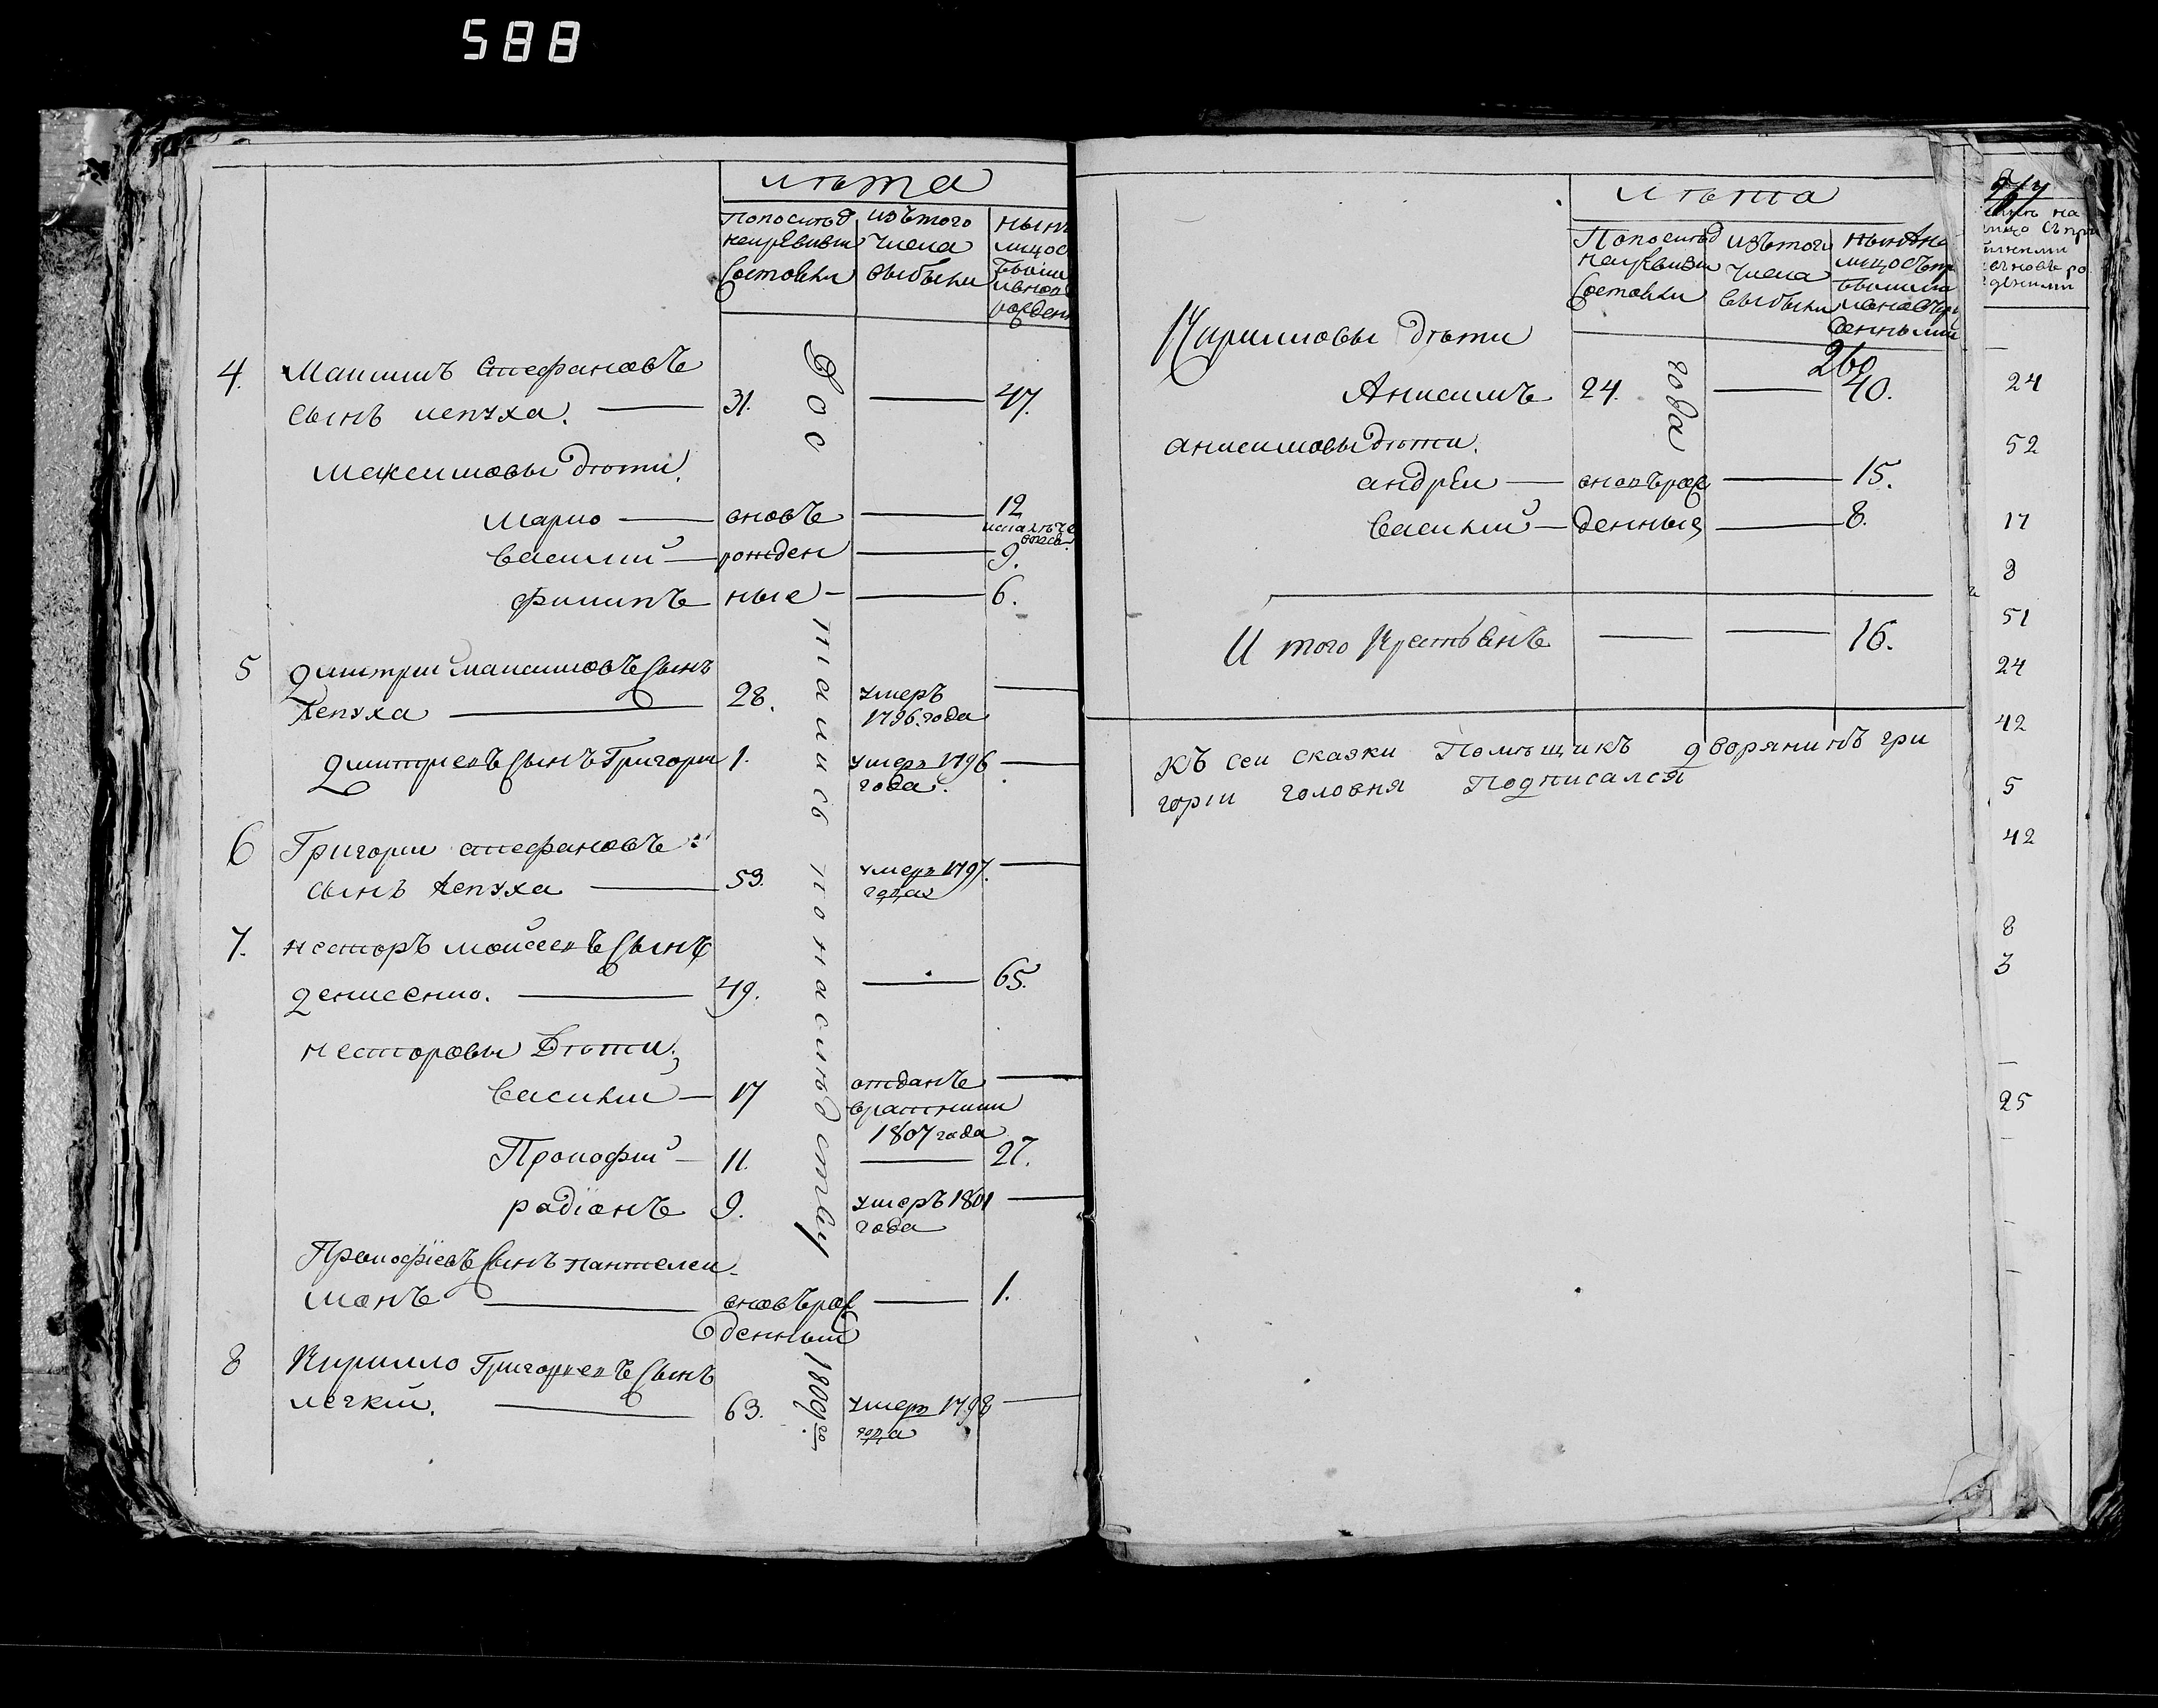 588
лѣта
По последней ревизии состояли
изъ того числа выбыли
4. Максимъ Стефановъ
сынъ лепуха. — 31. — 47.
Максимовы дѣти.
Марко — вновь — 12
Василий — рожден — 9.
Филипъ ные — — 6.
5 Дмитрий Максимовъ сынъ
Лепуха — 28. умеръ 1796 года —
Дмитриевъ сынъ Григори 1. умеръ 1796 года. —
6 Григори Стефановъ
сынъ Лепуха — 53. умеръ 1797. года —
7. Несторъ Моисеевъ сынъ
Денисенко. — 49. — 65.
Несторовы дѣти
Василии — 17 отданъ
в ратники
1807 года —
Прокофий — 11. — 27.
радіонъ 9. умеръ 1801 года —
Прокофіевъ сынъ пантелеи
монъ — вновъ рож
денный — 1.
8 Кирилло Григориевъ сынъ
легкий. — 63. умеръ 1798 года —
до
сталось по наследству
1809. го
лѣта
По последней ревизии состояли
изъ того числа выбыли
260
года
Кирилловы дѣти
Анисимъ 24. — 40.
анисимовы дѣти.
андреи — вновъ рож — 15.
Василий — денные — 8.
И того крестьянъ — — 16.
Къ сеи сказки Помѣщикъ дворянинъ гри
гории головня Подписался
24
52
17
8
51
24
42
5
42
8
3
25